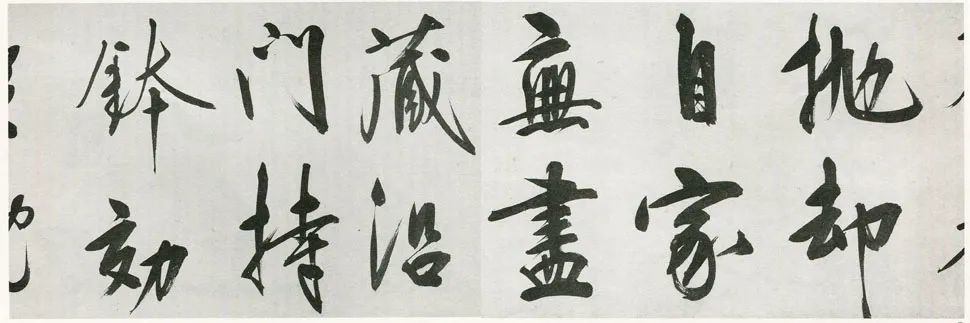 抛却
自家
無盡
藏沿
门持
鉢効